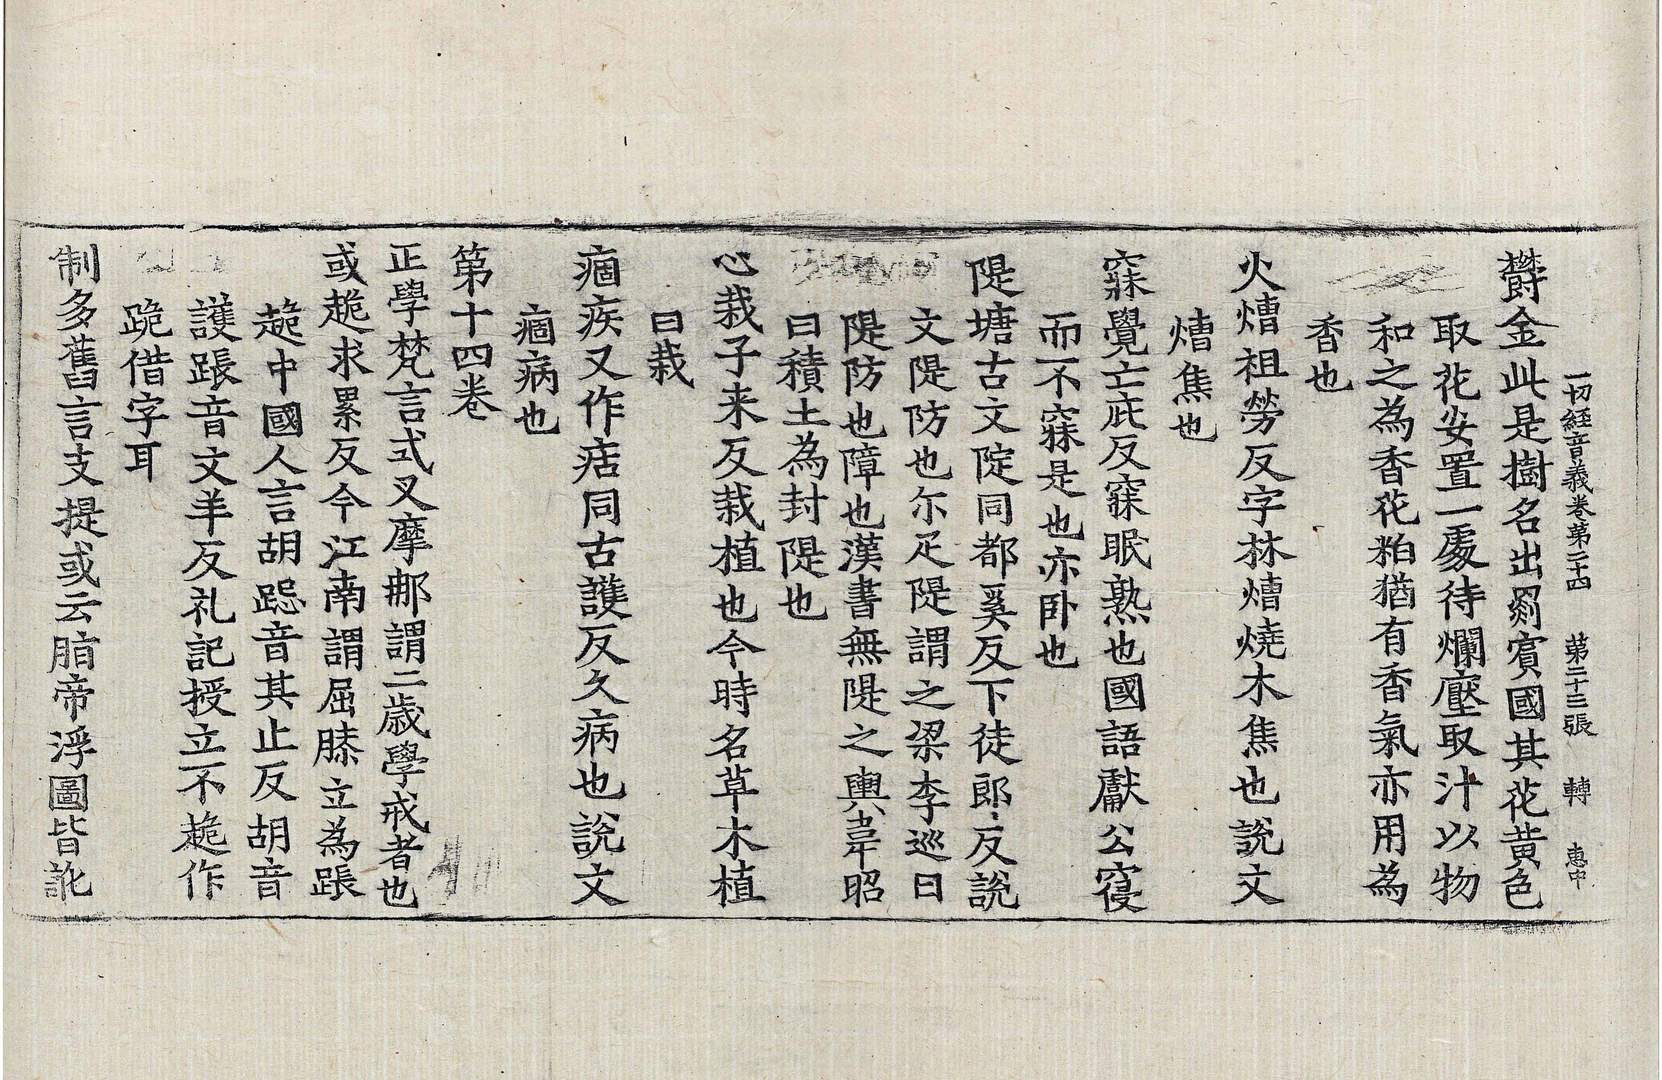 一切経音義卷第二十四　第二十三張　轉　惠中
欝金此是樹名出罽賓國其花黄色
取花安置一處待爛壓取汁以物
和之為香花粕猶有香氣亦用為
香也
火熸祖勞反字林熸燒木焦也說文
熸焦也
寐覺亡庇反寐眠熟也國語獻公寑
而不寐是也亦卧也
隄塘古文陧同都奚反下徒郎反說
文隄防也尓疋隄謂之梁李巡曰
隄防也障也漢書無隄之輿韋昭
曰積土為封隄也
心栽子来反栽植也今時名草木植
曰栽
痼疾又作㽽同古護反久病也說文
痼病也
第十四卷
正學梵言式叉摩那謂二歲學戒者也
或跪求累反今江南謂屈膝立為䠆
跪中國人言胡跽音其止反胡音
護䠆音文羊反礼記授立不跪作
跪借字耳
制多舊言支提或云脂帝浮圖皆訛